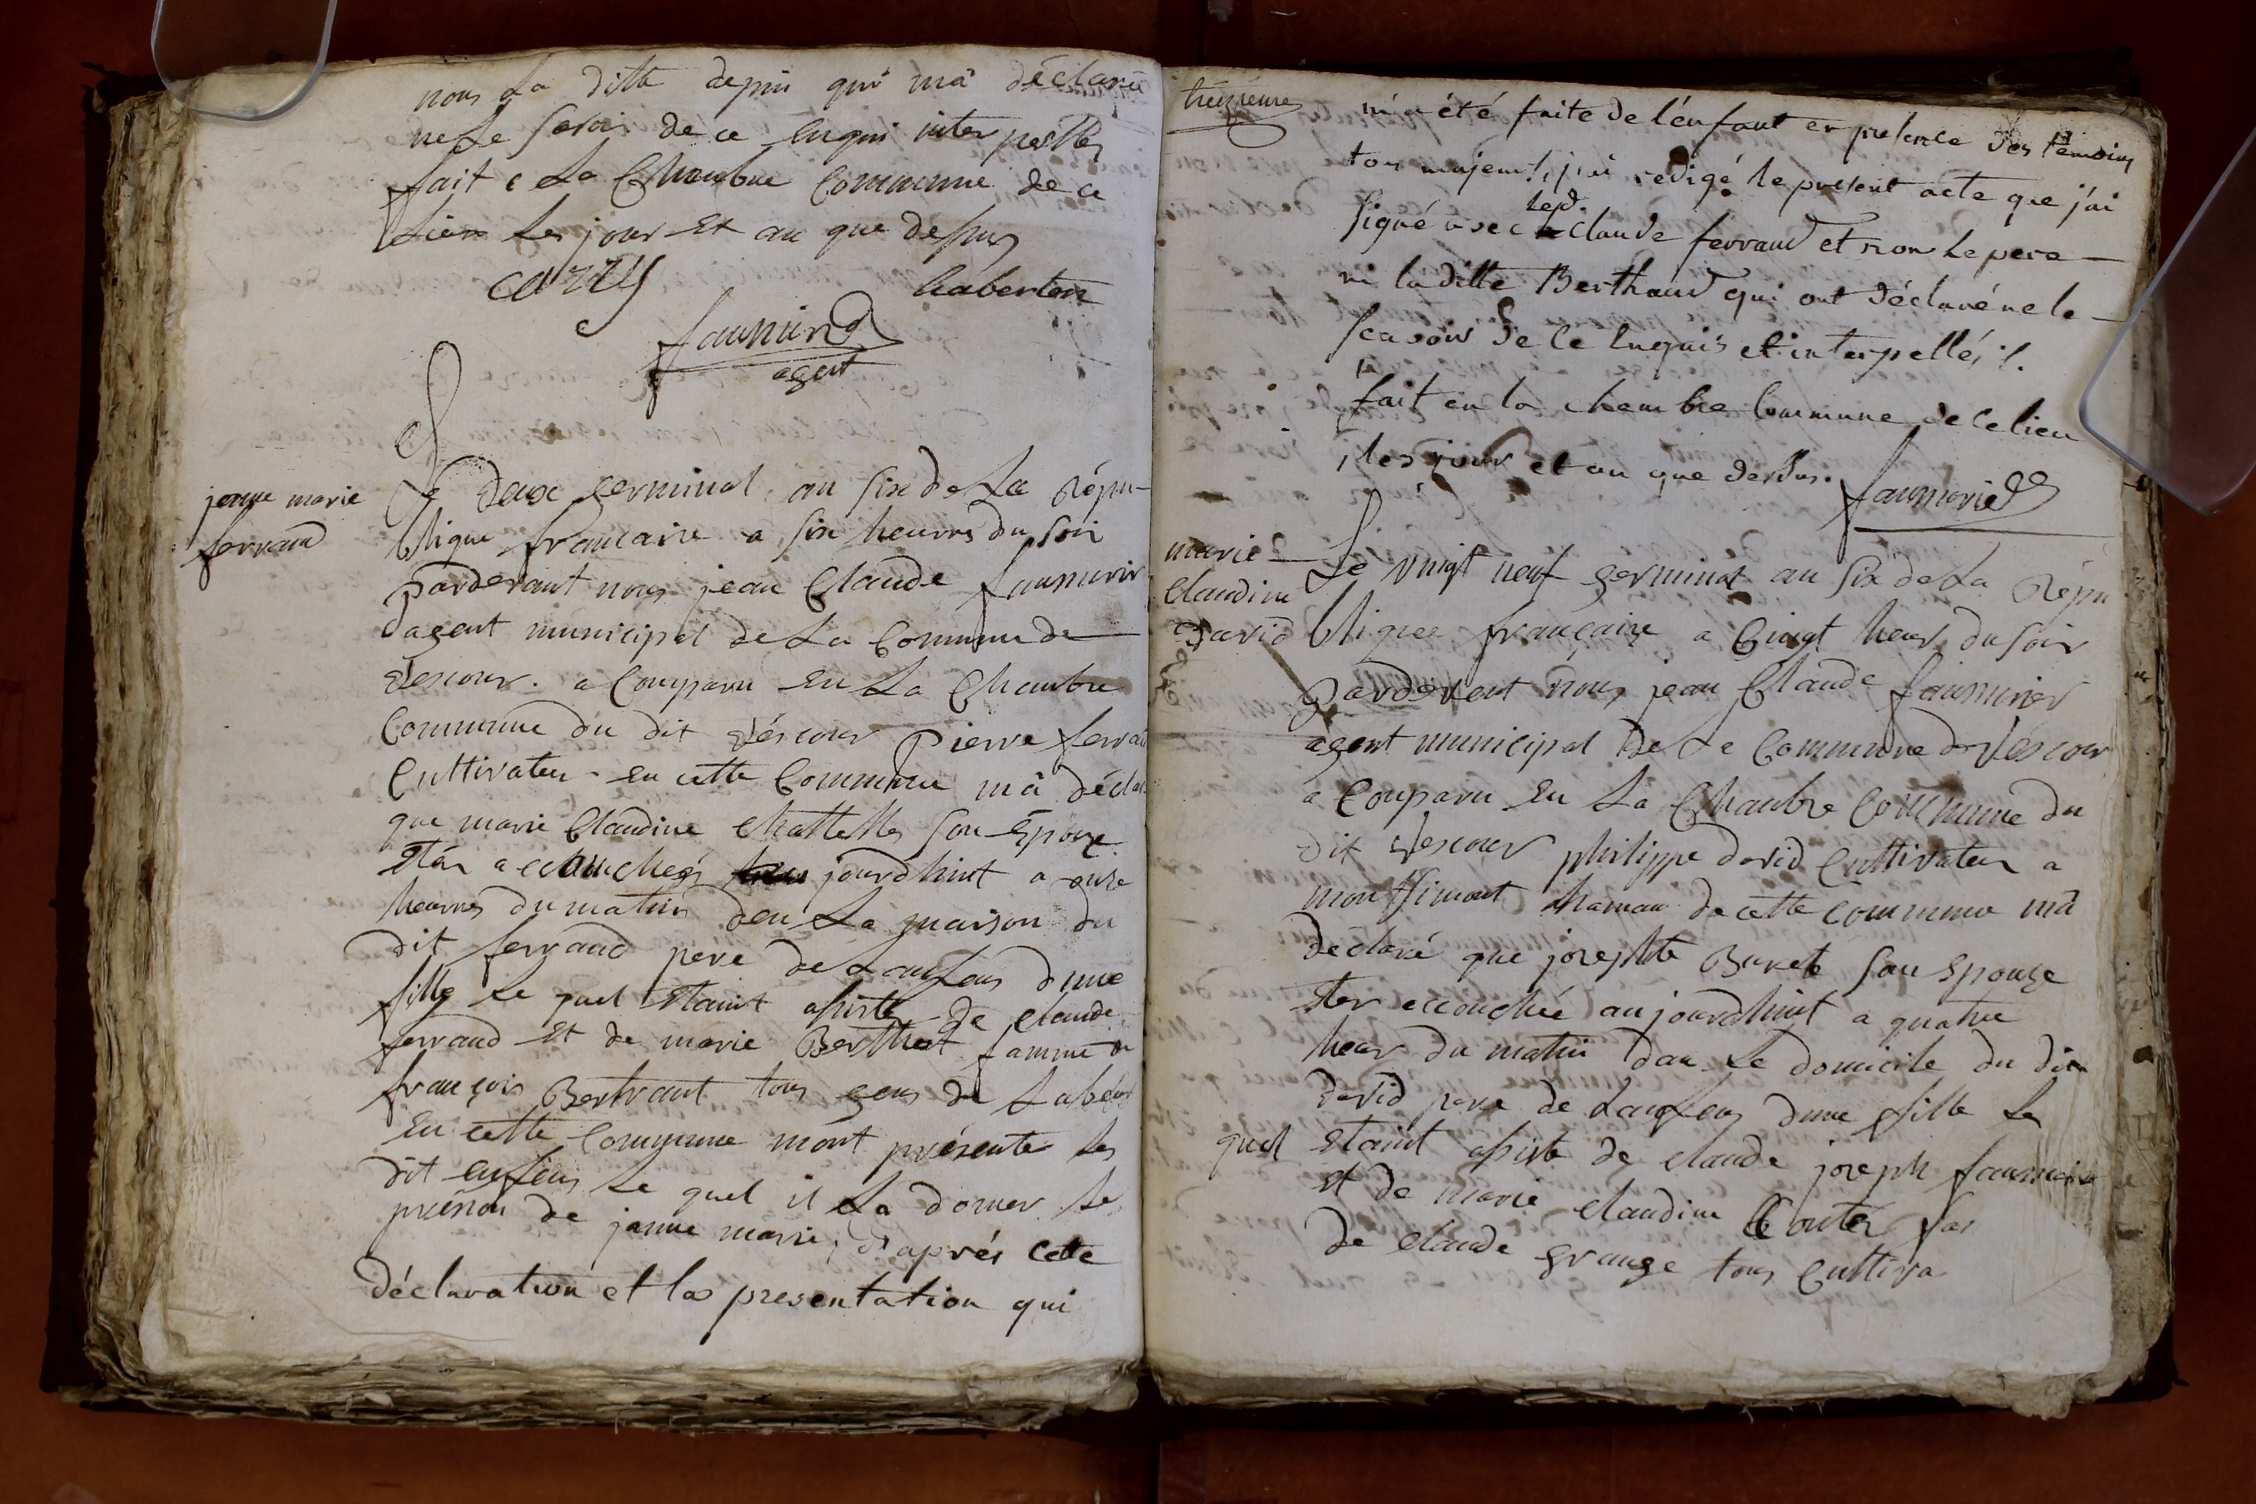 nous La ditte depin qui mà déclaré
ne Le Savoir de ce Enqui inter pestles
fait e La Chambre Commune de ce
Lieu Les jour Et an que desus
carry
chaberton
faumurier
agent
jeanne marie
ferraud
Le deux germinal an Six de La Répu-
blique francaise a Six heures du Soir
pardevant nous jean Claude faumurier
agent municipal de La Commune de
Vescour. a Comparu En La Chambre
Commune du dit Véscour Pierre ferrau
Cultivateur En cette Commune mà déclar
que marie Claudine chattelles Son Epouze
Etér accouchéés jourdhuit a onze
heurres du matin den La maison du
dit ferraud pere de Lenfens dune
fille Le quel Etaint asisté de claude
ferraud Et de marie Berthet famme de
françois Bertraut tous gens de Labeur
En cette Commune mont présente Les
dit enfens Le quel il La donner Le
prénon de janne marie, d'aprés cette
déclaration et la presentation qui
treizieme
m'a été faite de l'énfant en presence des témoins
tous majeurs, j'ai redigé le present acte que j'ai
signé avec led. Claude ferraud et non le pere
ni la ditte Berthaud qui ont déclaré ne le
scavoir de ce Enquis et interpellés ./.
fait en la chambre Commune de ce lieu
les jour et an que dessus.
faumurier
marie
Claudine
David
Le vingt neuf germinal an Six de La Répu
bliques française a Cinqt heurs du Soir
Pardevent nous jean Claude faumurier
agent municipal De La Commune de Véscour
a Comparu En La Chambre Commune du
dit Vescour philippe david Cultivateur a
mon Simont hamau de cette commune mà
déclaré que josephte Buret Son Epouze
Eter accouchée aujourdhuit a quatre
heur du matin dan Le domicile du dit
david pere de Lenfens dune fille Le
quel Etaint asisté de claude joseph faumurier
et de marie Claudine
de Claude grange tous Cultiva